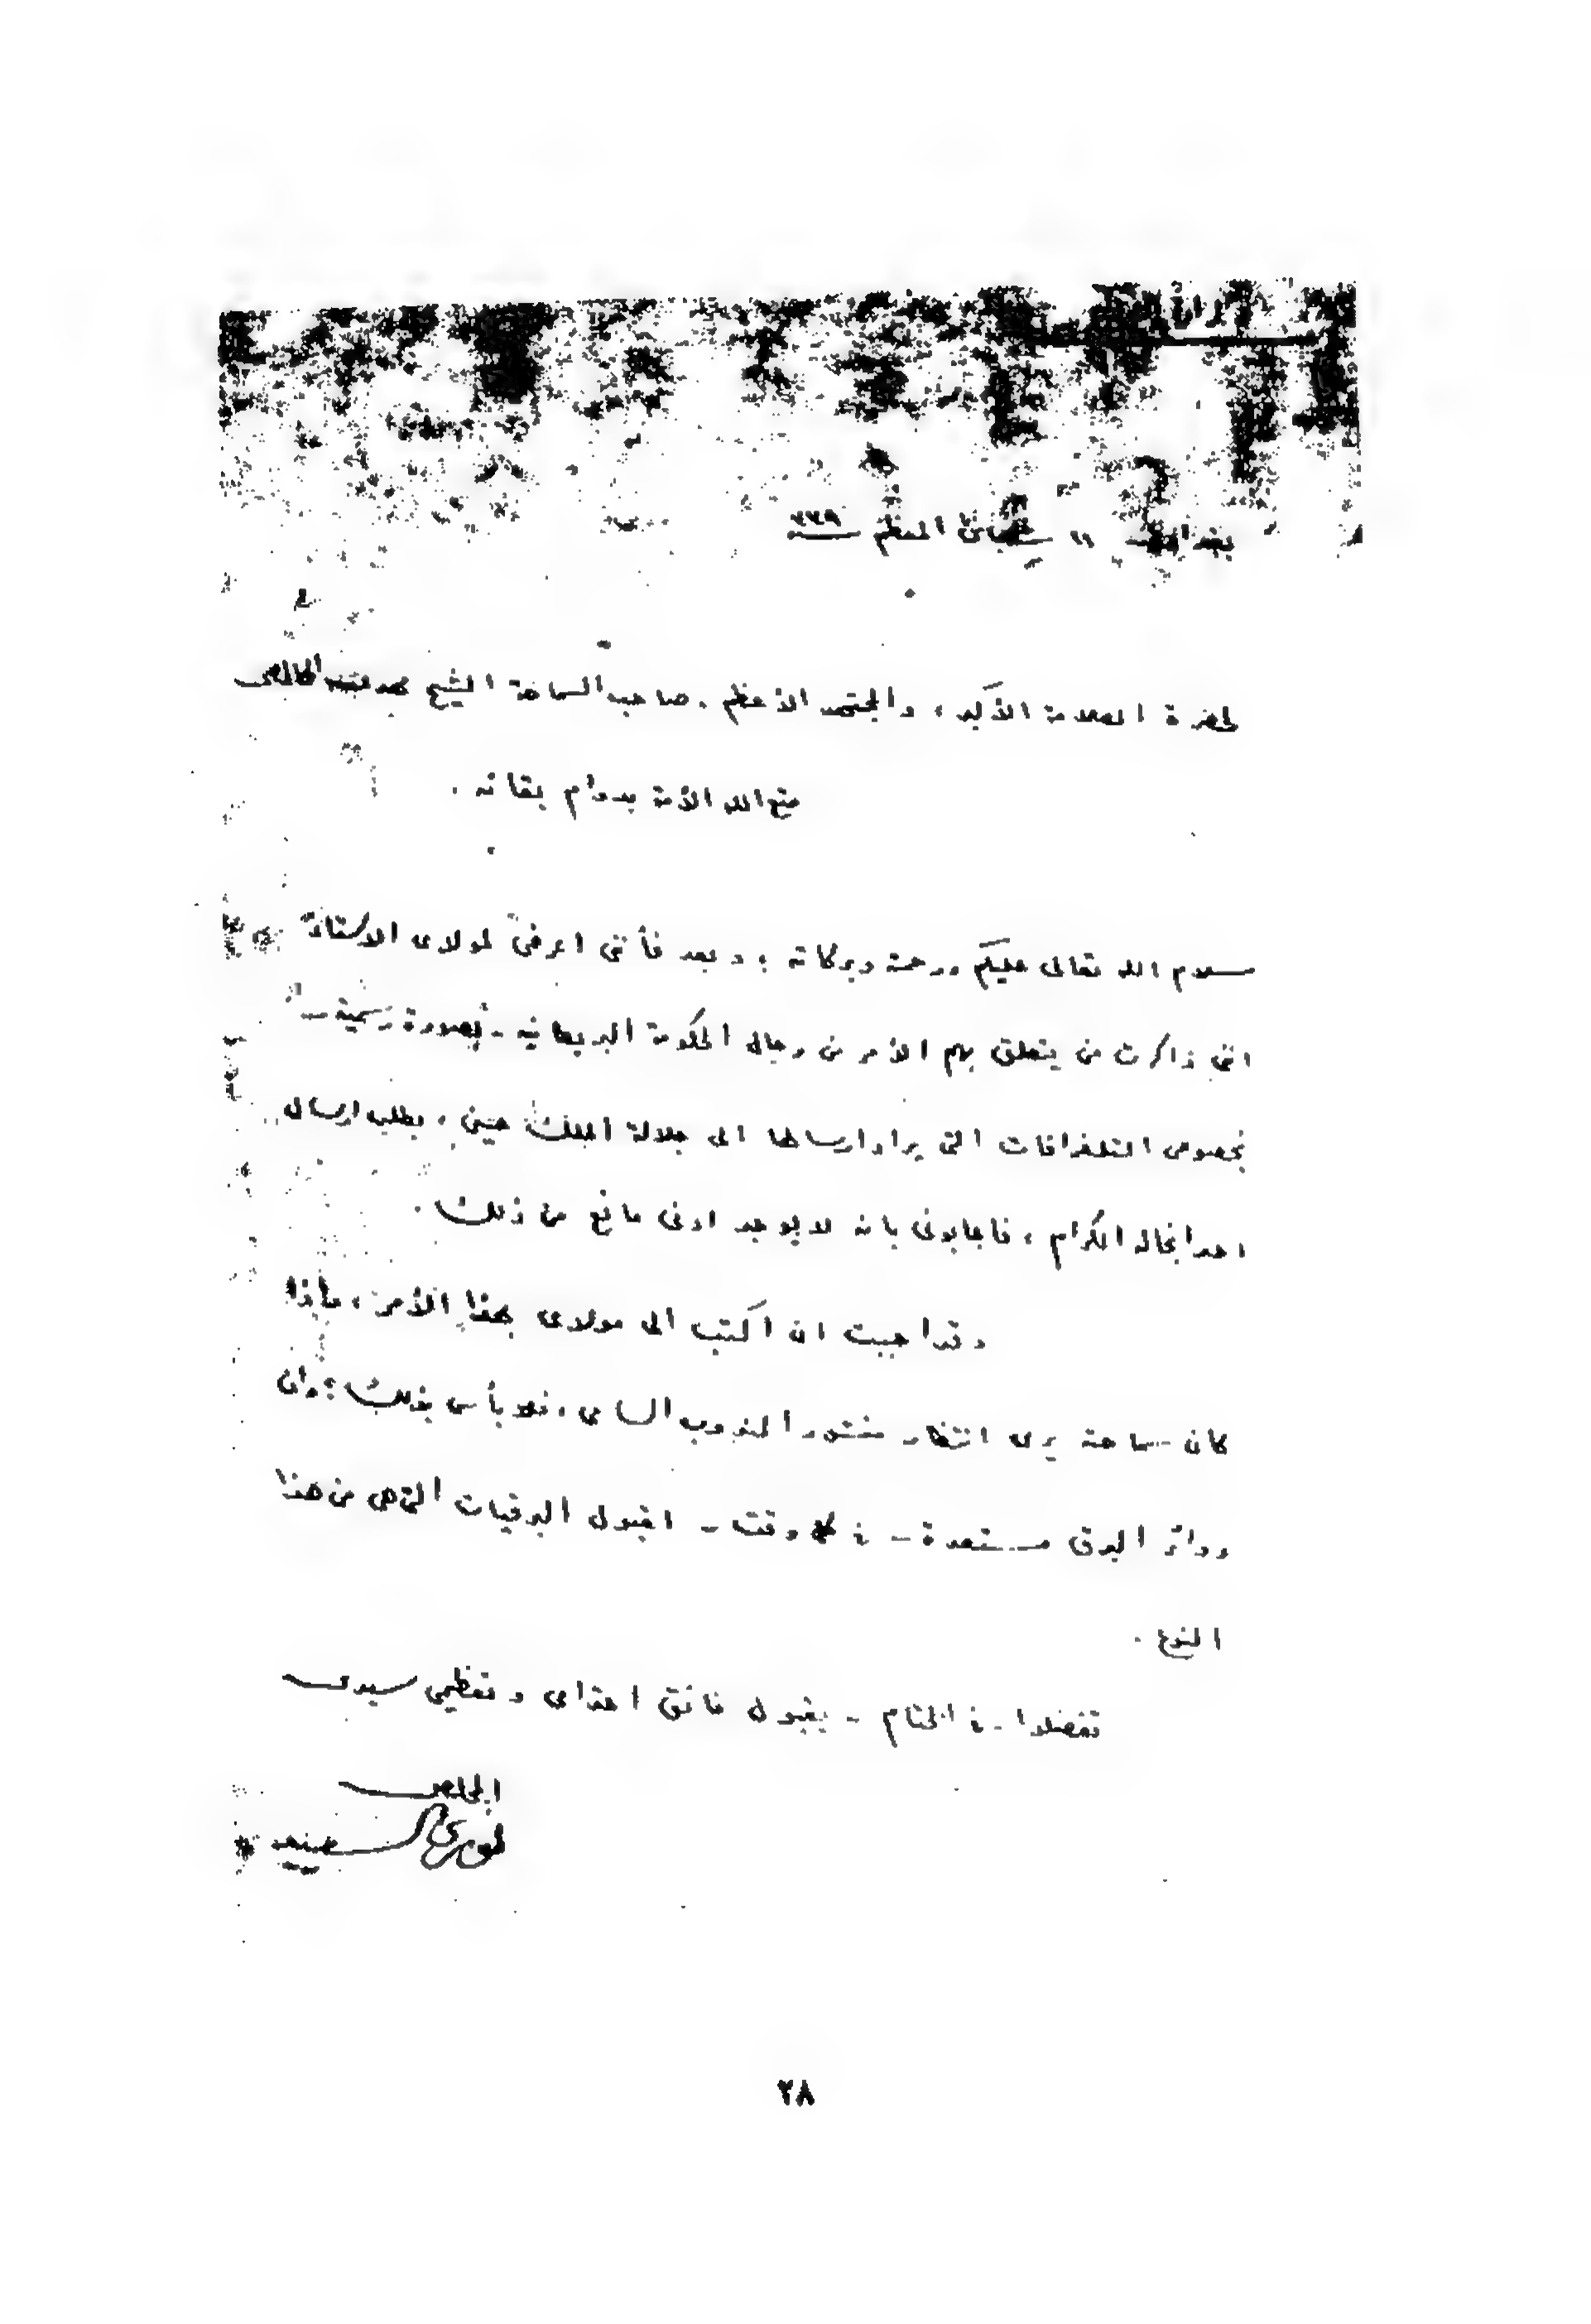 بغداد ١١ شعبان المعظم ٣٣٩
لحضرة العلامة الأكبر ، والمجتهد الأعظم ، صاحب السماحة الشيخ محمد مهدي الخالصي
متع الله الأمة بدوام بقائه .
سلام الله تعالى عليكم ورحمته وبركاته ؛ وبعد فأنني اعرض لمولاي الاستاذ
انني ذاكرت من يتعلق بهم الأمر من رجال الحكومة البريطانيه - بصورة رسمية -
بخصوص التلغرافات التي يراد ارسالها الى جلالة الملك حسين ، بطلب ارسال
احد انجاله الكرام ، فاجابوني بانه لا يوجد ادنى مانع من ذلك .
وقد احببت ان اكتب الى مولاي بهذا الأمر ، فإذا
كان سماحته يرى انتظار منشور المندوب السامي ، فلا بأس بذلك ؛ وان
دوائر البرق مستعدة - في كل وقت - لقبول البرقيات التي هي من هذا
النوع .
تفضلوا - في الختام - بقبول فائق احترامي وتعظيمي سيدي
المخلص
نوري السعيد
٢٨